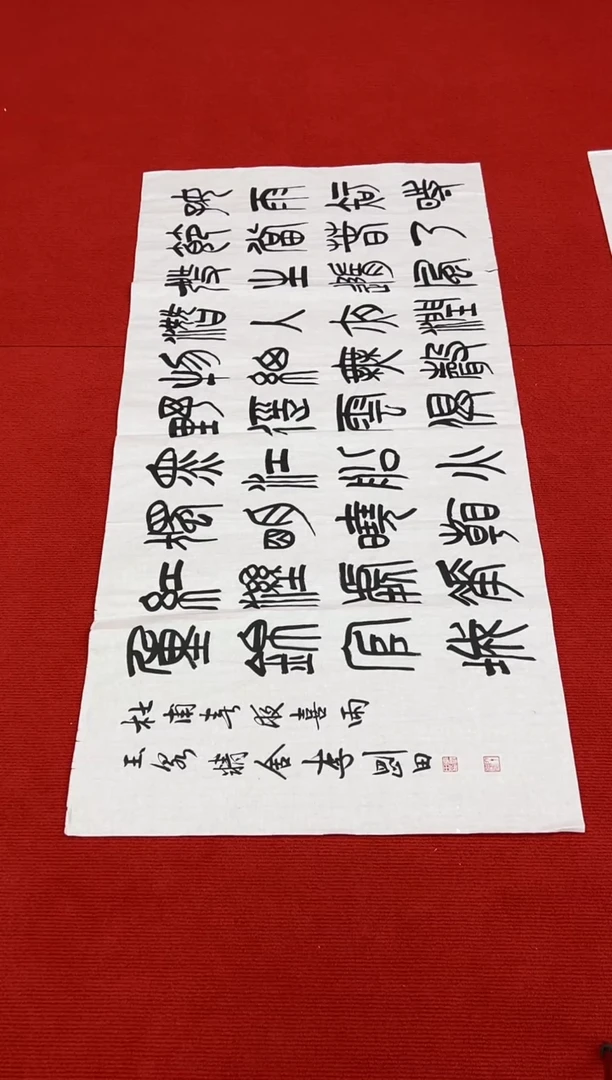 好雨知時
節當春乃
發生隨風
潛入夜潤
物細無聲
野徑雲俱
黑江船火
獨明曉看
紅濕處花
重錦官城
杜甫春夜喜雨
精舍李剛田